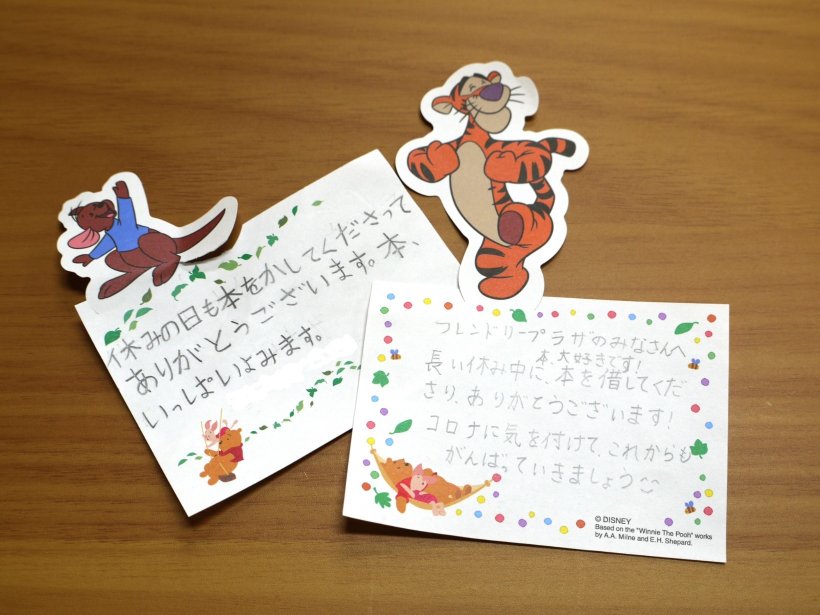 休みの日も本をかしてくださって
ありがとうございます。本、
いっぱいよみます。
フレンドリープラザのみなさんへ
本大好きです!
長い休み中に、本を借してくだ
さり、ありがとうございます!
コロナに気を付けて、これからも、
がんばっていきましょう
© DISNEY
Based on the "Winnie The Pooh" works
by A.A. Milne and E.H. Shepard.